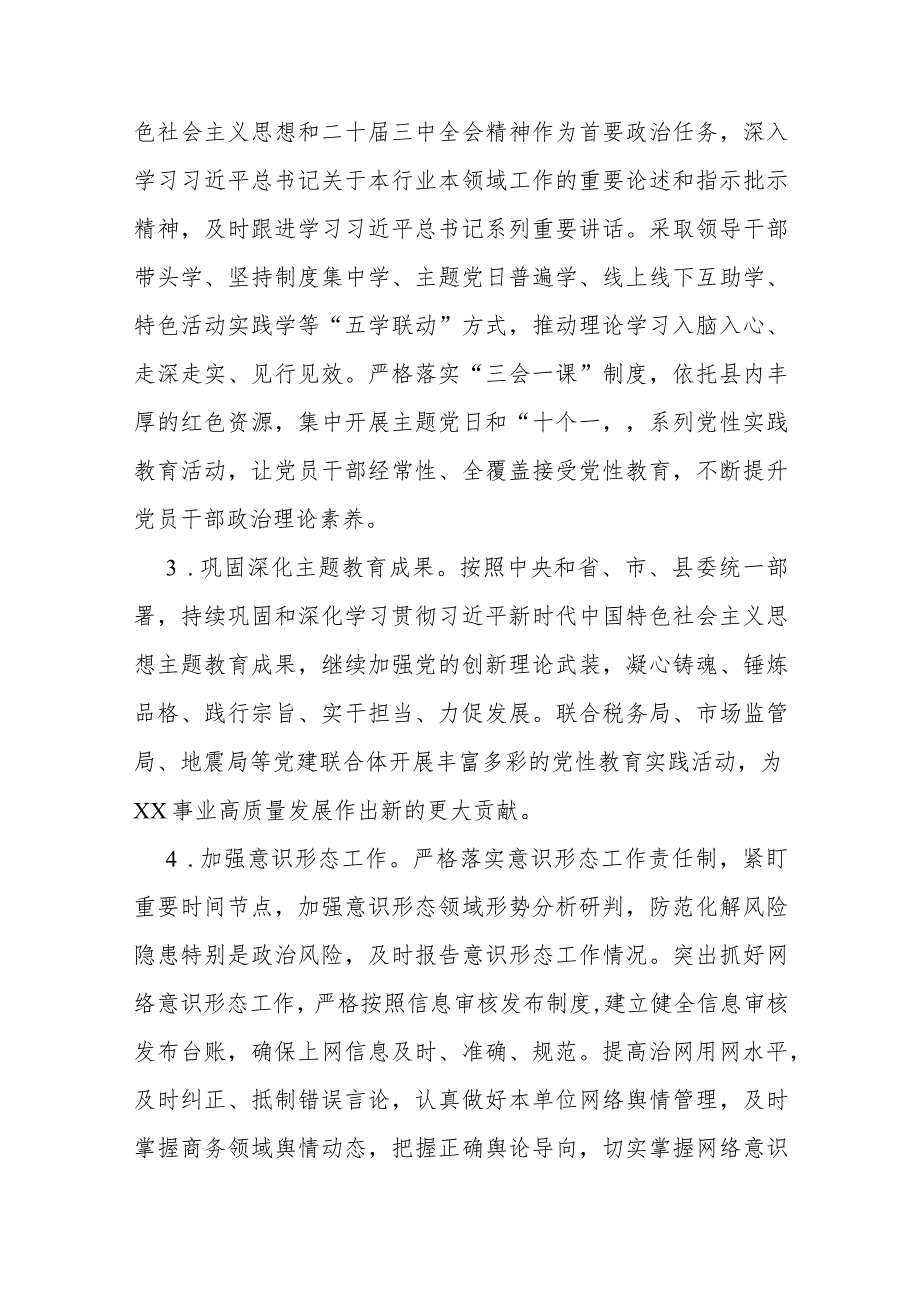 色社会主义思想和二十届三中全会精神作为首要政治任务，深入
学习习近平总书记关于本行业本领域工作的重要论述和指示批示
精神，及时跟进学习习近平总书记系列重要讲话。采取领导干部
带头学、坚持制度集中学、主题党日普遍学、线上线下互助学、
特色活动实践学等“五学联动”方式，推动理论学习入脑入心、
走深走实、见行见效。严格落实“三会一课”制度，依托县内丰
厚的红色资源，集中开展主题党日和“十个一，，系列党性实践
教育活动，让党员干部经常性、全覆盖接受党性教育，不断提升
党员干部政治理论素养。
3 . 巩固深化主题教育成果。按照中央和省、市、县委统一部
署，持续巩固和深化学习贯彻习近平新时代中国特色社会主义思
想主题教育成果，继续加强党的创新理论武装，凝心铸魂、锤炼
品格、践行宗旨、实干担当、力促发展。联合税务局、市场监管
局、地震局等党建联合体开展丰富多彩的党性教育实践活动，为
XX 事业高质量发展作出新的更大贡献。
4 . 加强意识形态工作。严格落实意识形态工作责任制，紧盯
重要时间节点，加强意识形态领域形势分析研判，防范化解风险
隐患特别是政治风险，及时报告意识形态工作情况。突出抓好网
络意识形态工作，严格按照信息审核发布制度,建立健全信息审核
发布台账，确保上网信息及时、准确、规范。提高治网用网水平，
及时纠正、抵制错误言论，认真做好本单位网络舆情管理，及时
掌握商务领域舆情动态，把握正确舆论导向，切实掌握网络意识